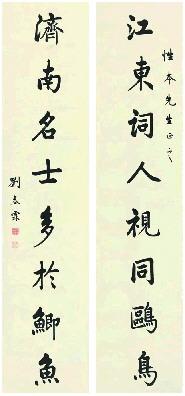 江東詞人視同鷗鳥
性本先生正之
濟南名士多於鯽魚
劉春霖